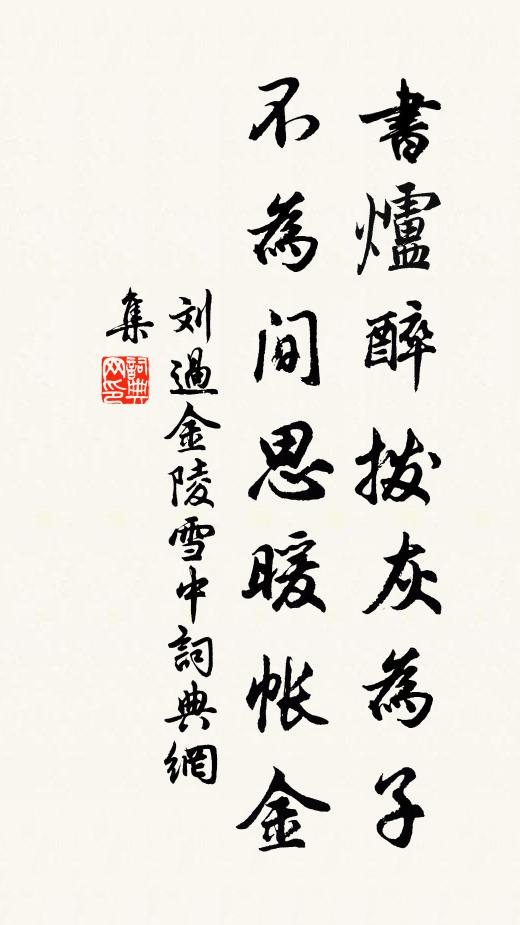 書爐醉撥灰為子
不為間思暖帳金
刘過金陵雪中詞典網
集
詞典
网印